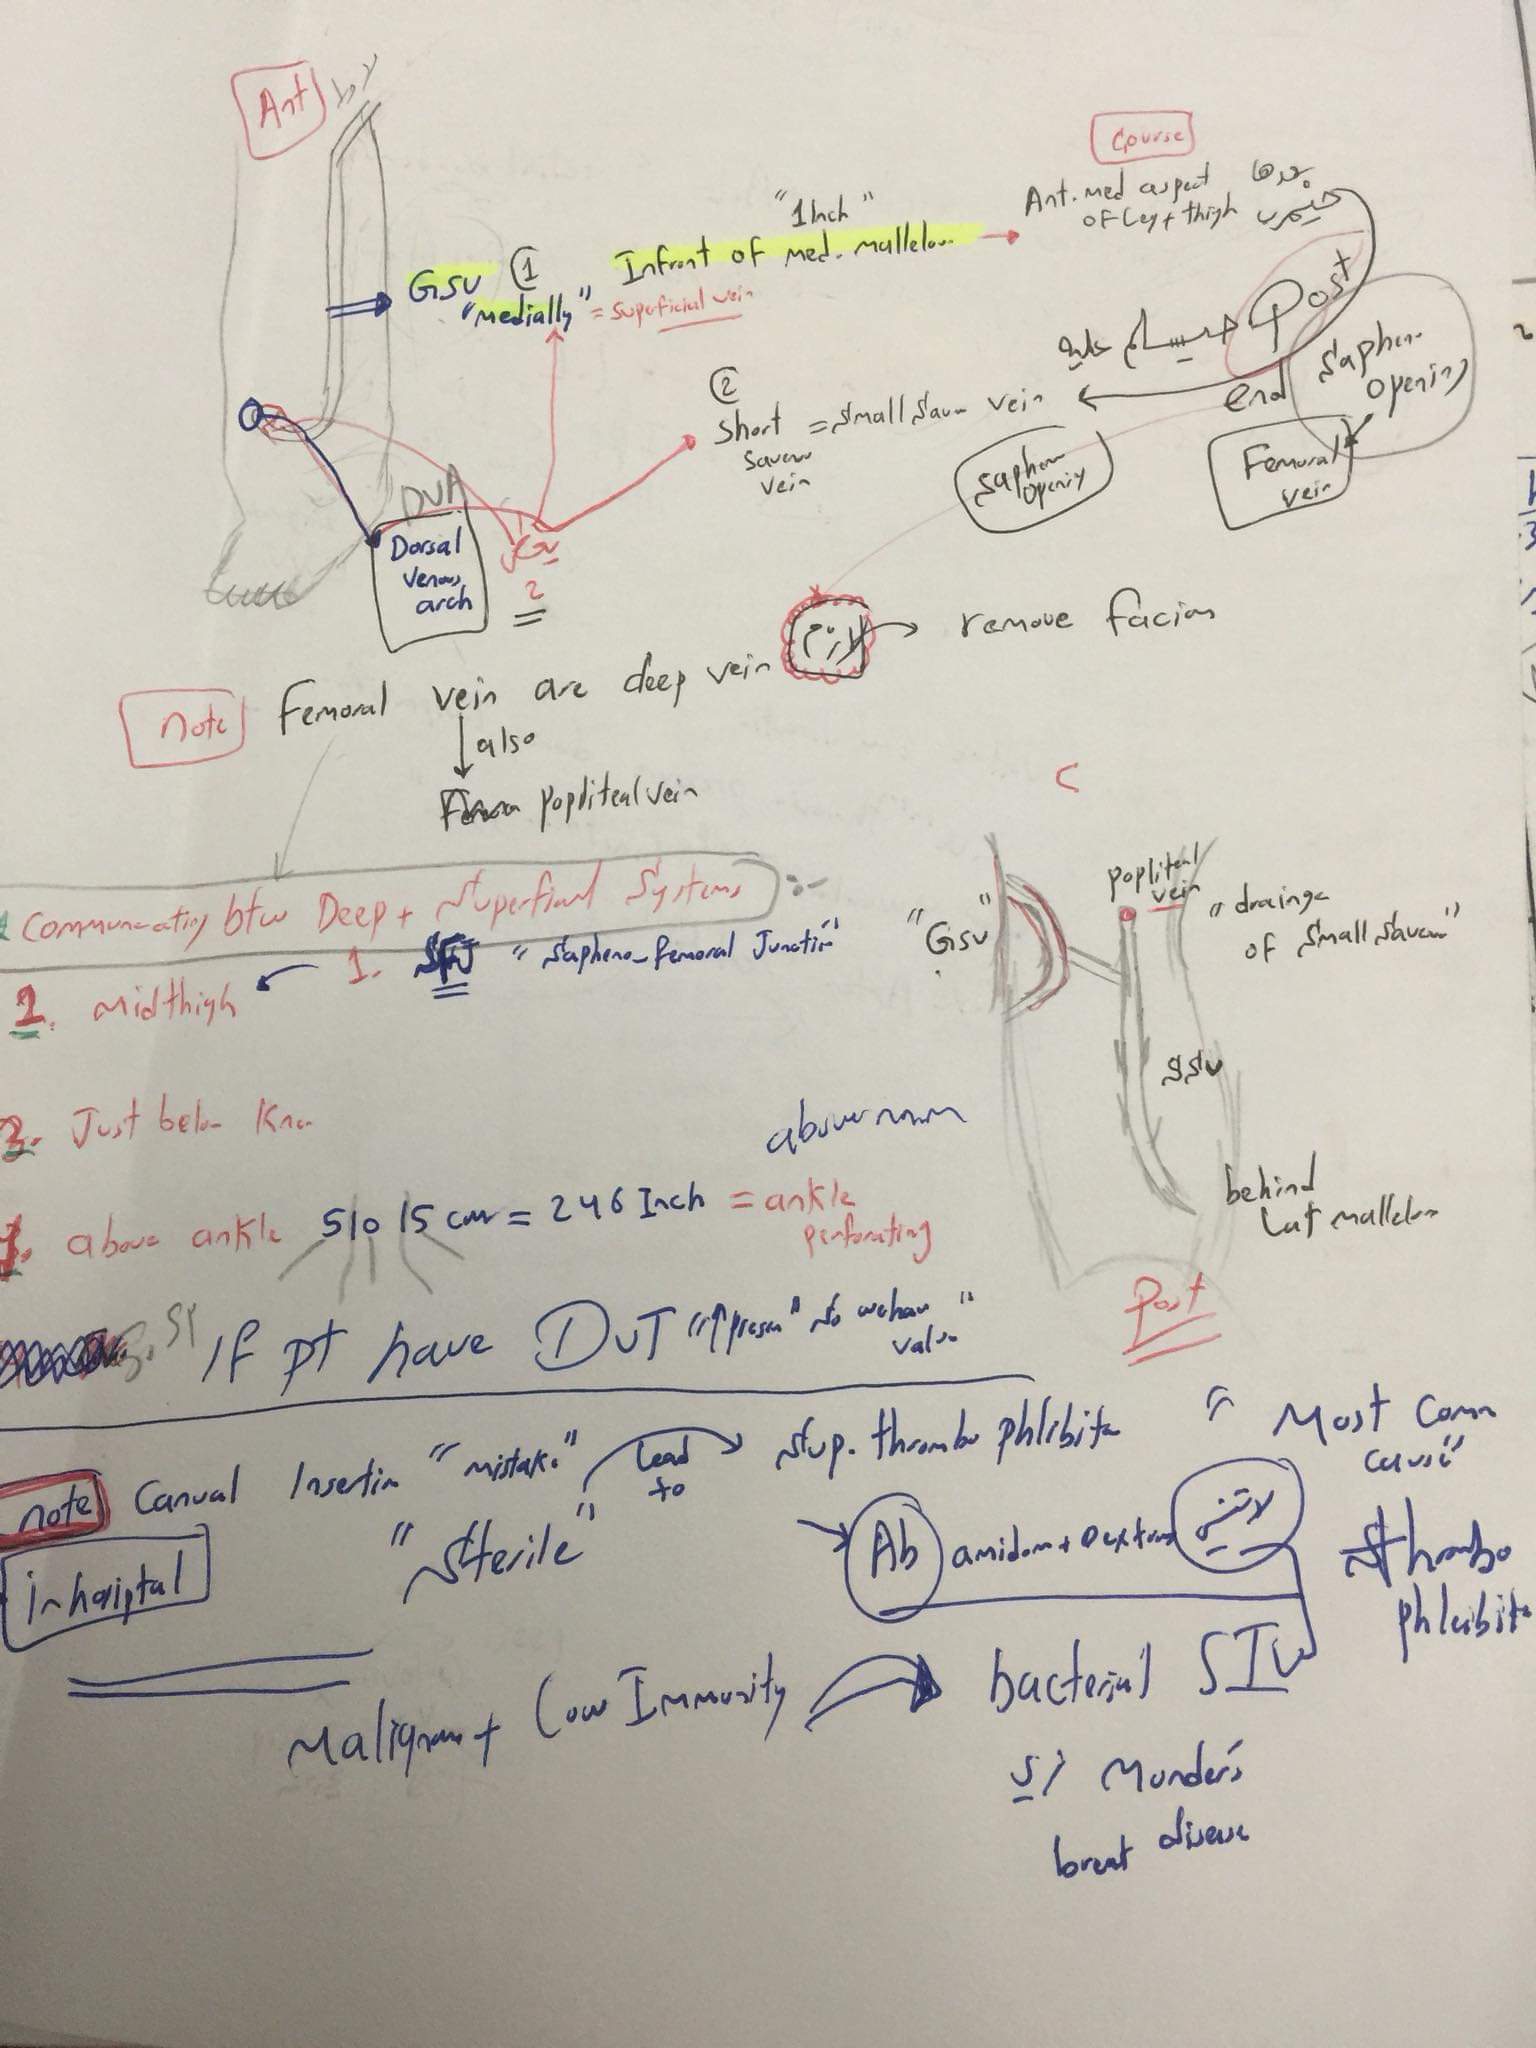 Ant
Course
"1 Inch"
Ant. med aspect
of Leg + thigh
GSV ① Infront of med. mallelo
"medially" = superficial vein
Post
②
Short = Small Saven vein
Saven
vein
end
Saphen
Opening
Saphen
Opening
Femoral
vein
DVA
Dorsal
Venous
arch
2
لازم
remove facion
note
Femoral vein are deep vein
also
popliteal vein
Communicating btw Deep + Superficial Systems
1. SFJ "Sapheno-femoral Junction"
2. midthigh
3. Just below Kne
above ankle 5 10 15 cm = 2 4 6 Inch = ankle
perforating
"GSV"
popliteal
vein
"drainge
of Small Saven"
SSV
behind
Lat mallelo
Post
If pt have DVT
note
Canual Insertin "mistake" Lead
to
Sup. thrombo phlibits
"Most Comm
cause"
"Sterile"
In hosiptal
Ab
amidom + Dextrose
thrombo
phlebits
Malignant + Low Immunity
bacterial
Munder's
breat disease